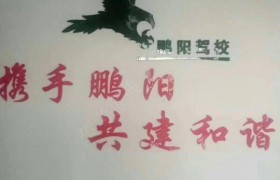 鹏阳驾校
携手鹏阳
共建和谐